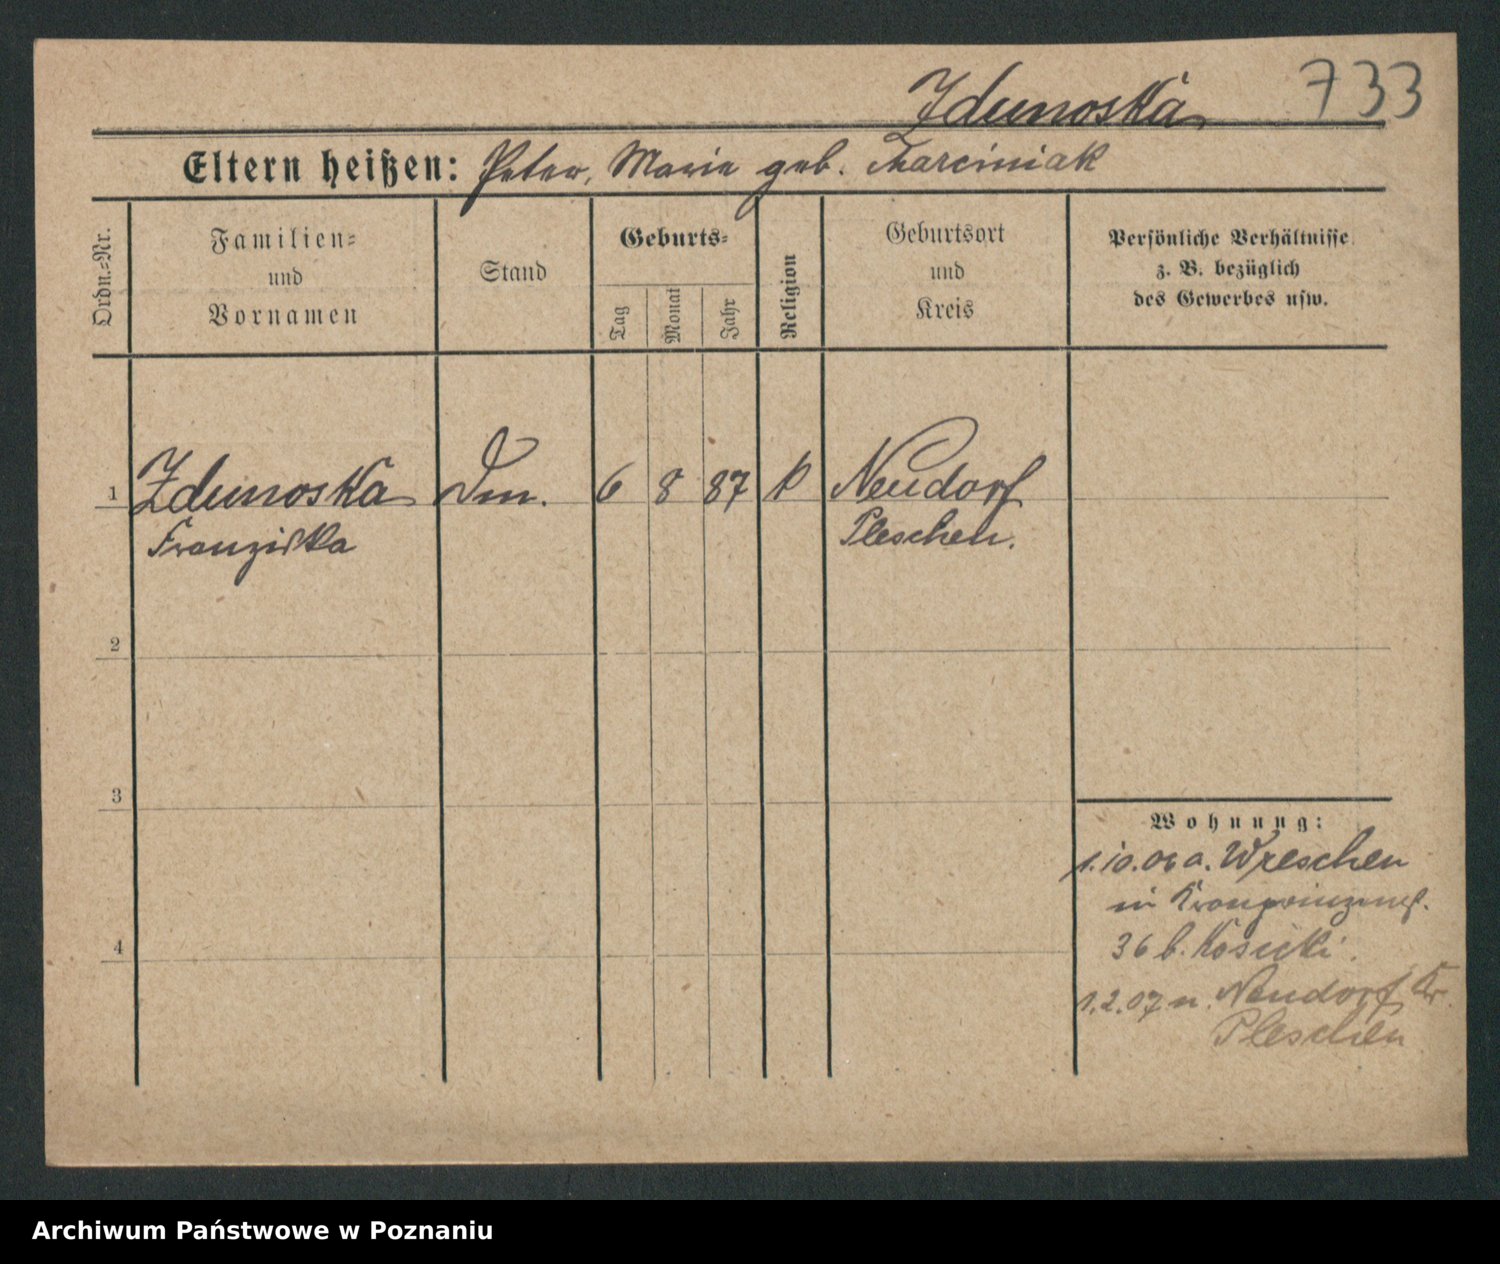 Zdunoska 733
Eltern heißen: Peter, Marie geb. Marciniak
Ordn.=Nr.
Familien=
und
Vornamen
Stand
Geburts=
Tag
Monat
Jahr
Religion
Geburtsort
und
Kreis
Persönliche Verhältnisse
z. B. bezüglich
des Gewerbes usw.
1 Zdunoska 6 8 87 k Neudorf
Franziska Pleschen.
2
3
4
Wohnung:
1.10.06 a. Wreschen
in Kronprinzenst.
36 b. Kosicki.
1.2.07 n. Neudorf Kr.
Pleschen
Archiwum Państwowe w Poznaniu